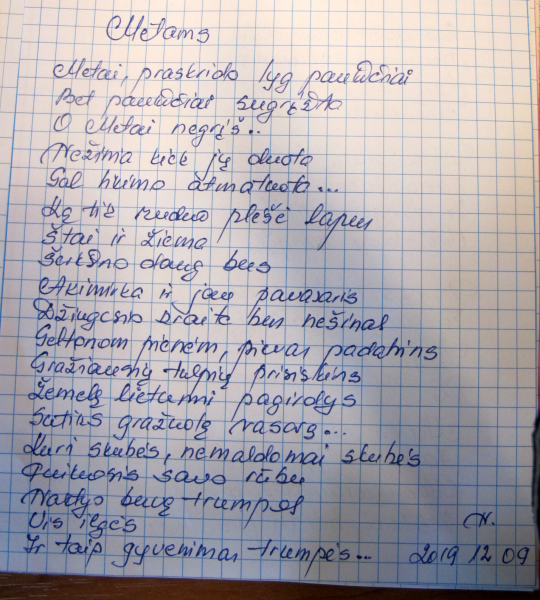 Metams
Metai, praskrido lyg paukščiai
Bet paukščiai sugrįžta
O Metai negrįš..
Nežinia kiek jų duota
Gal likimo atmatuota...
Ką tik ruduo plėšė lapus
Štai ir žiema
Šerkšno daug bus
Akimirka ir jau pavasaris
Džiugesio
Geltonom pienėm, pievas padabins
Gražiausių tulpių prisiskins
Žemelę lietumi pagirdys
Sutiks gražuolę vasarą...
Kuri skubės, nemaldomai skubės
Puikuosis savo rūbu
Naktys buvę trumpos
Vis ilgės
Ir taip gyvenimas trumpės...
N.
2019 12 09